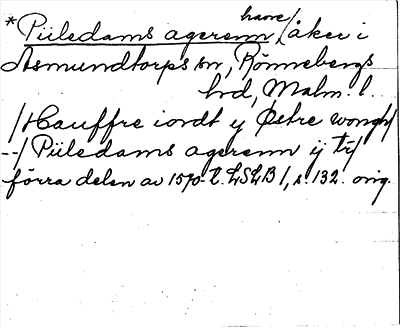 *Piiledams agerenn have/åker i
Asmundtorps sn, Rönnebergs
hd, Malm. l.
/Hauffre iordt ij Østre wongh/
--/ Piiledams agerenn ij tr/
förra delen av 1570-t. LSLB 1, s. 132. orig.